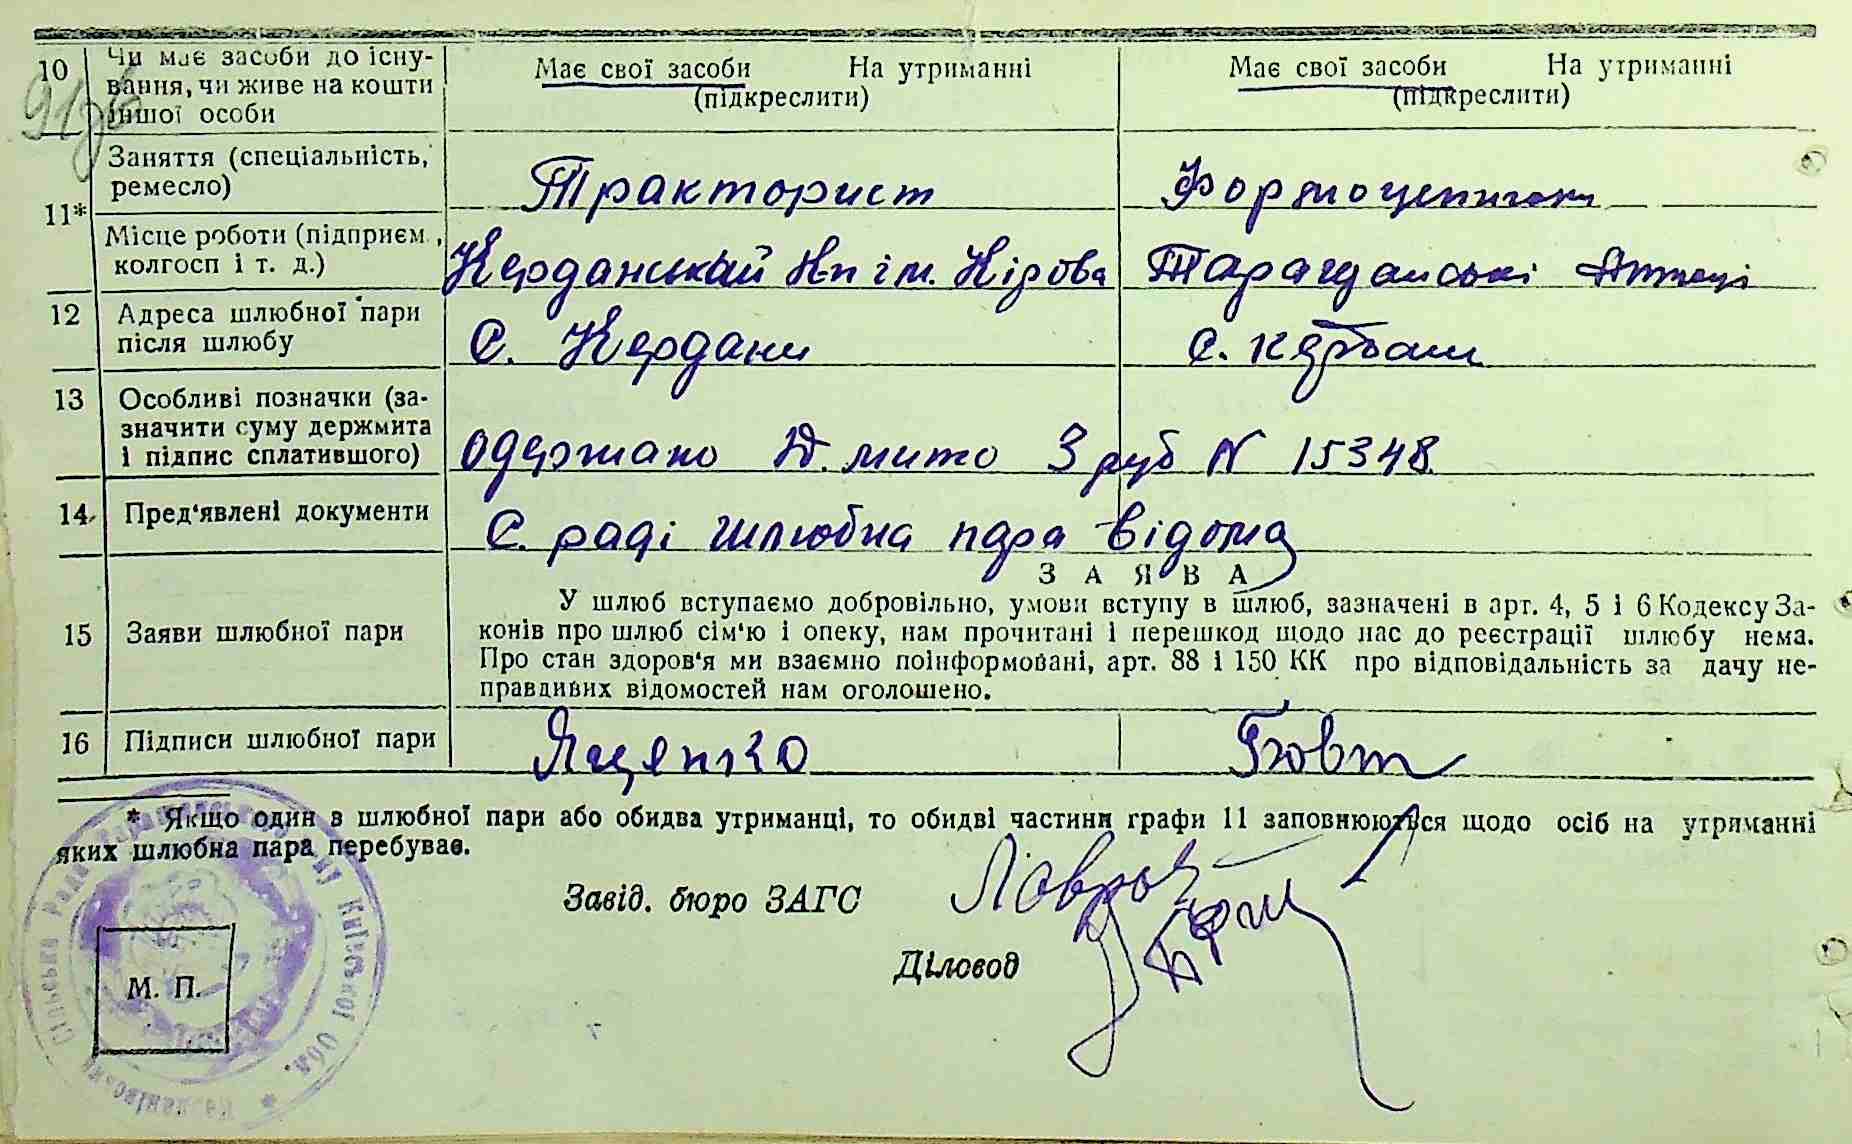 10 Чи має засоби до існування, чи живе на кошти іншої особи
Має свої засоби На утриманні
(підкреслити)
Має свої засоби На утриманні
(підкреслити)
11* Заняття (спеціальність, ремесло)
Тракторист
Місце роботи (підприєм., колгосп і т. д.)
Керданський Кп ім. Кірова
12 Адреса шлюбної пари після шлюбу
С. Кердани
с. Кердани
13 Особливі позначки (зазначити суму держмита і підпис сплатившого)
одержано Д. мито 3 руб N 15348.
14 Пред'явлені документи
С. раді шлюбна пара відома
ЗАЯВА
15 Заяви шлюбної пари
У шлюб вступаємо добровільно, умови вступу в шлюб, зазначені в арт. 4, 5 і 6 Кодексу За-
конів про шлюб сім'ю і опеку, нам прочитані і перешкод щодо нас до реєстрації шлюбу нема.
Про стан здоров'я ми взаємно поінформовані, арт. 88 і 150 КК про відповідальність за дачу не-
правдивих відомостей нам оголошено.
16 Підписи шлюбної пари
Яценко
Товт
* Якщо один з шлюбної пари або обидва утриманці, то обидві частини графи 11 заповнюються щодо осіб на утриманні
яких шлюбна пара перебуває.
Завід. бюро ЗАГС
Діловод
М. П.
Сільська Рада Київської Обл.